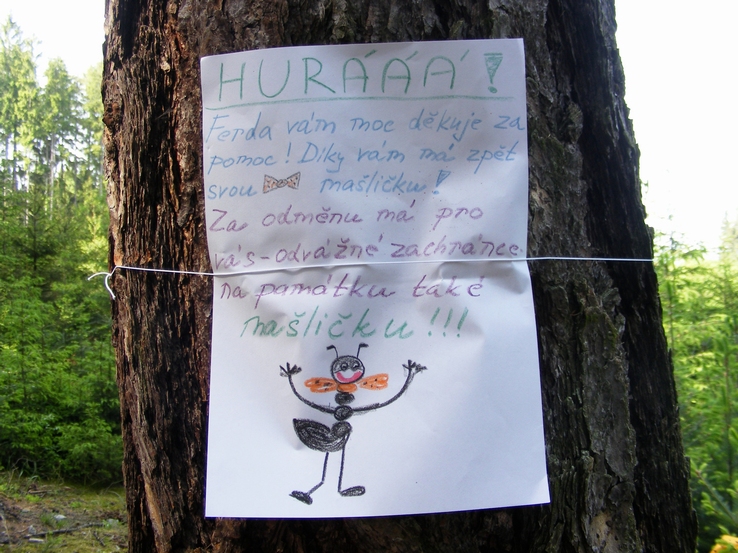 HURÁÁÁ!
Ferda vám moc děkuje za
pomoc! Díky vám má zpět
svou mašličku!
Za odměnu má pro
vás-odvážné zachránce
na památku také
mašličku!!!